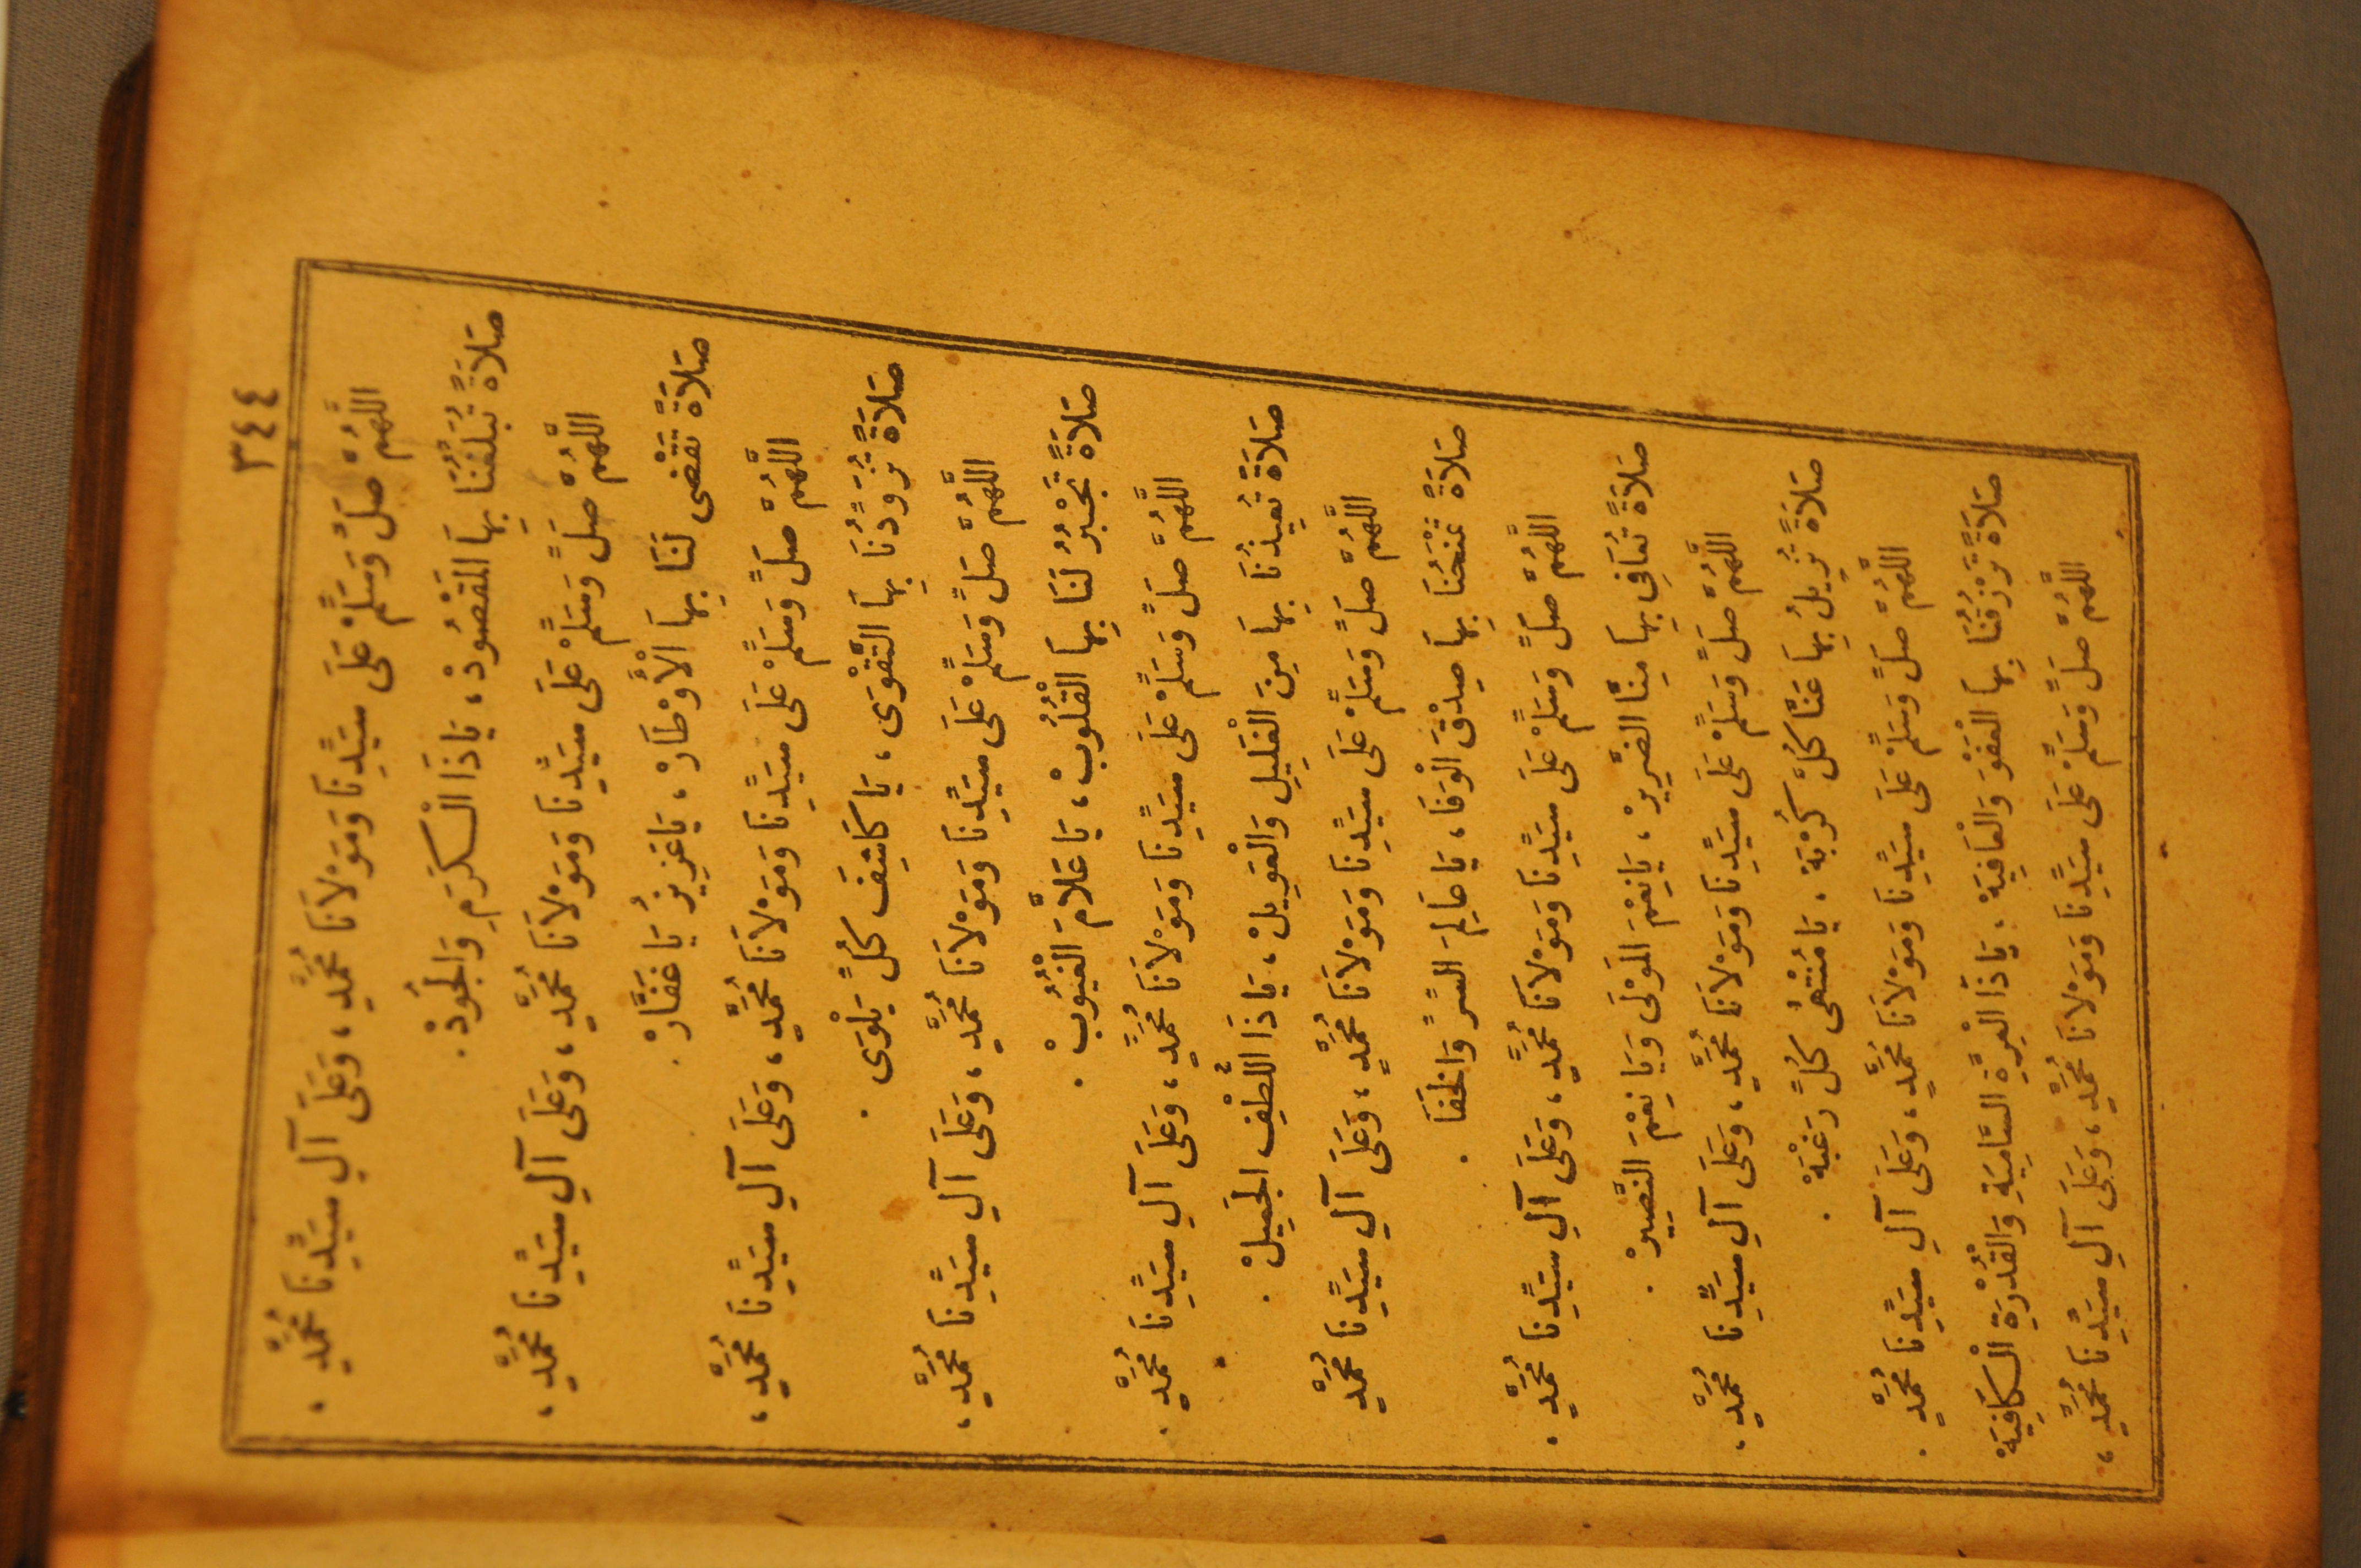 ٣٤٤
اللَّهُمَّ صَلِّ وَسَلِّمْ عَلَى سَيِّدِنَا وَمَوْلَانَا مُحَمَّدٍ، وَعَلَى آلِ سَيِّدِنَا مُحَمَّدٍ،
صَلَاةً تُبَلِّغُنَا بِهَا الْمَقْصُودْ، يَا ذَا الْكَرَمِ وَالْجُودْ.
اللَّهُمَّ صَلِّ وَسَلِّمْ عَلَى سَيِّدِنَا وَمَوْلَانَا مُحَمَّدٍ، وَعَلَى آلِ سَيِّدِنَا مُحَمَّدٍ،
صَلَاةً تَقْضِى لَنَا بِهَا الْأَوْطَارْ، يَا عَزِيزُ يَا غَفَّارْ.
اللَّهُمَّ صَلِّ وَسَلِّمْ عَلَى سَيِّدِنَا وَمَوْلَانَا مُحَمَّدٍ، وَعَلَى آلِ سَيِّدِنَا مُحَمَّدٍ،
صَلَاةً تُزَوِّدُنَا بِهَا التَّقْوَى، يَا كَاشِفَ كُلِّ بَلْوَى.
اللَّهُمَّ صَلِّ وَسَلِّمْ عَلَى سَيِّدِنَا وَمَوْلَانَا مُحَمَّدٍ، وَعَلَى آلِ سَيِّدِنَا مُحَمَّدٍ،
صَلَاةً تَجْبُرُ لَنَا بِهَا الْقُلُوبْ، يَا عَلَّامَ الْغُيُوبْ.
اللَّهُمَّ صَلِّ وَسَلِّمْ عَلَى سَيِّدِنَا وَمَوْلَانَا مُحَمَّدٍ، وَعَلَى آلِ سَيِّدِنَا مُحَمَّدٍ.
صَلَاةً تُعِيذُنَا بِهَا مِنَ الْغَلِيلِ وَالْعَوِيلْ، يَا ذَا اللُّطْفِ الْجَمِيلْ.
اللَّهُمَّ صَلِّ وَسَلِّمْ عَلَى سَيِّدِنَا وَمَوْلَانَا مُحَمَّدٍ، وَعَلَى آلِ سَيِّدِنَا مُحَمَّدٍ
صَلَاةً تَمْنَحُنَا بِهَا صِدْقَ الْوَفَا، يَا عَالِمَ السِّرِّ وَالْخَفَا.
اللَّهُمَّ صَلِّ وَسَلِّمْ عَلَى سَيِّدِنَا وَمَوْلَانَا مُحَمَّدٍ، وَعَلَى آلِ سَيِّدِنَا مُحَمَّدٍ.
صَلَاةً تُعَافِى بِهَا مِنَّا الضَّرِيرْ، يَا نِعْمَ الْمَوْلَى وَيَا نِعْمَ النَّصِيرْ.
اللَّهُمَّ صَلِّ وَسَلِّمْ عَلَى سَيِّدِنَا وَمَوْلَانَا مُحَمَّدٍ، وَعَلَى آلِ سَيِّدِنَا مُحَمَّدٍ،
صَلَاةً تُزِيلُ بِهَا عَنَّا كُلَّ كُرْبَهْ، يَا مُنْتَهَى كُلِّ رَغْبَهْ.
اللَّهُمَّ صَلِّ وَسَلِّمْ عَلَى سَيِّدِنَا وَمَوْلَانَا مُحَمَّدٍ، وَعَلَى آلِ سَيِّدِنَا مُحَمَّدٍ.
صَلَاةً تَرْزُقُنَا بِهَا الْعَفْوَ وَالْعَافِيَهْ، يَا ذَا الْعِزَّةِ السَّامِيَةِ وَالْقُدْرَةِ الْكَافِيَهْ
اللَّهُمَّ صَلِّ وَسَلِّمْ عَلَى سَيِّدِنَا وَمَوْلَانَا مُحَمَّدٍ، وَعَلَى آلِ سَيِّدِنَا مُحَمَّدٍ،